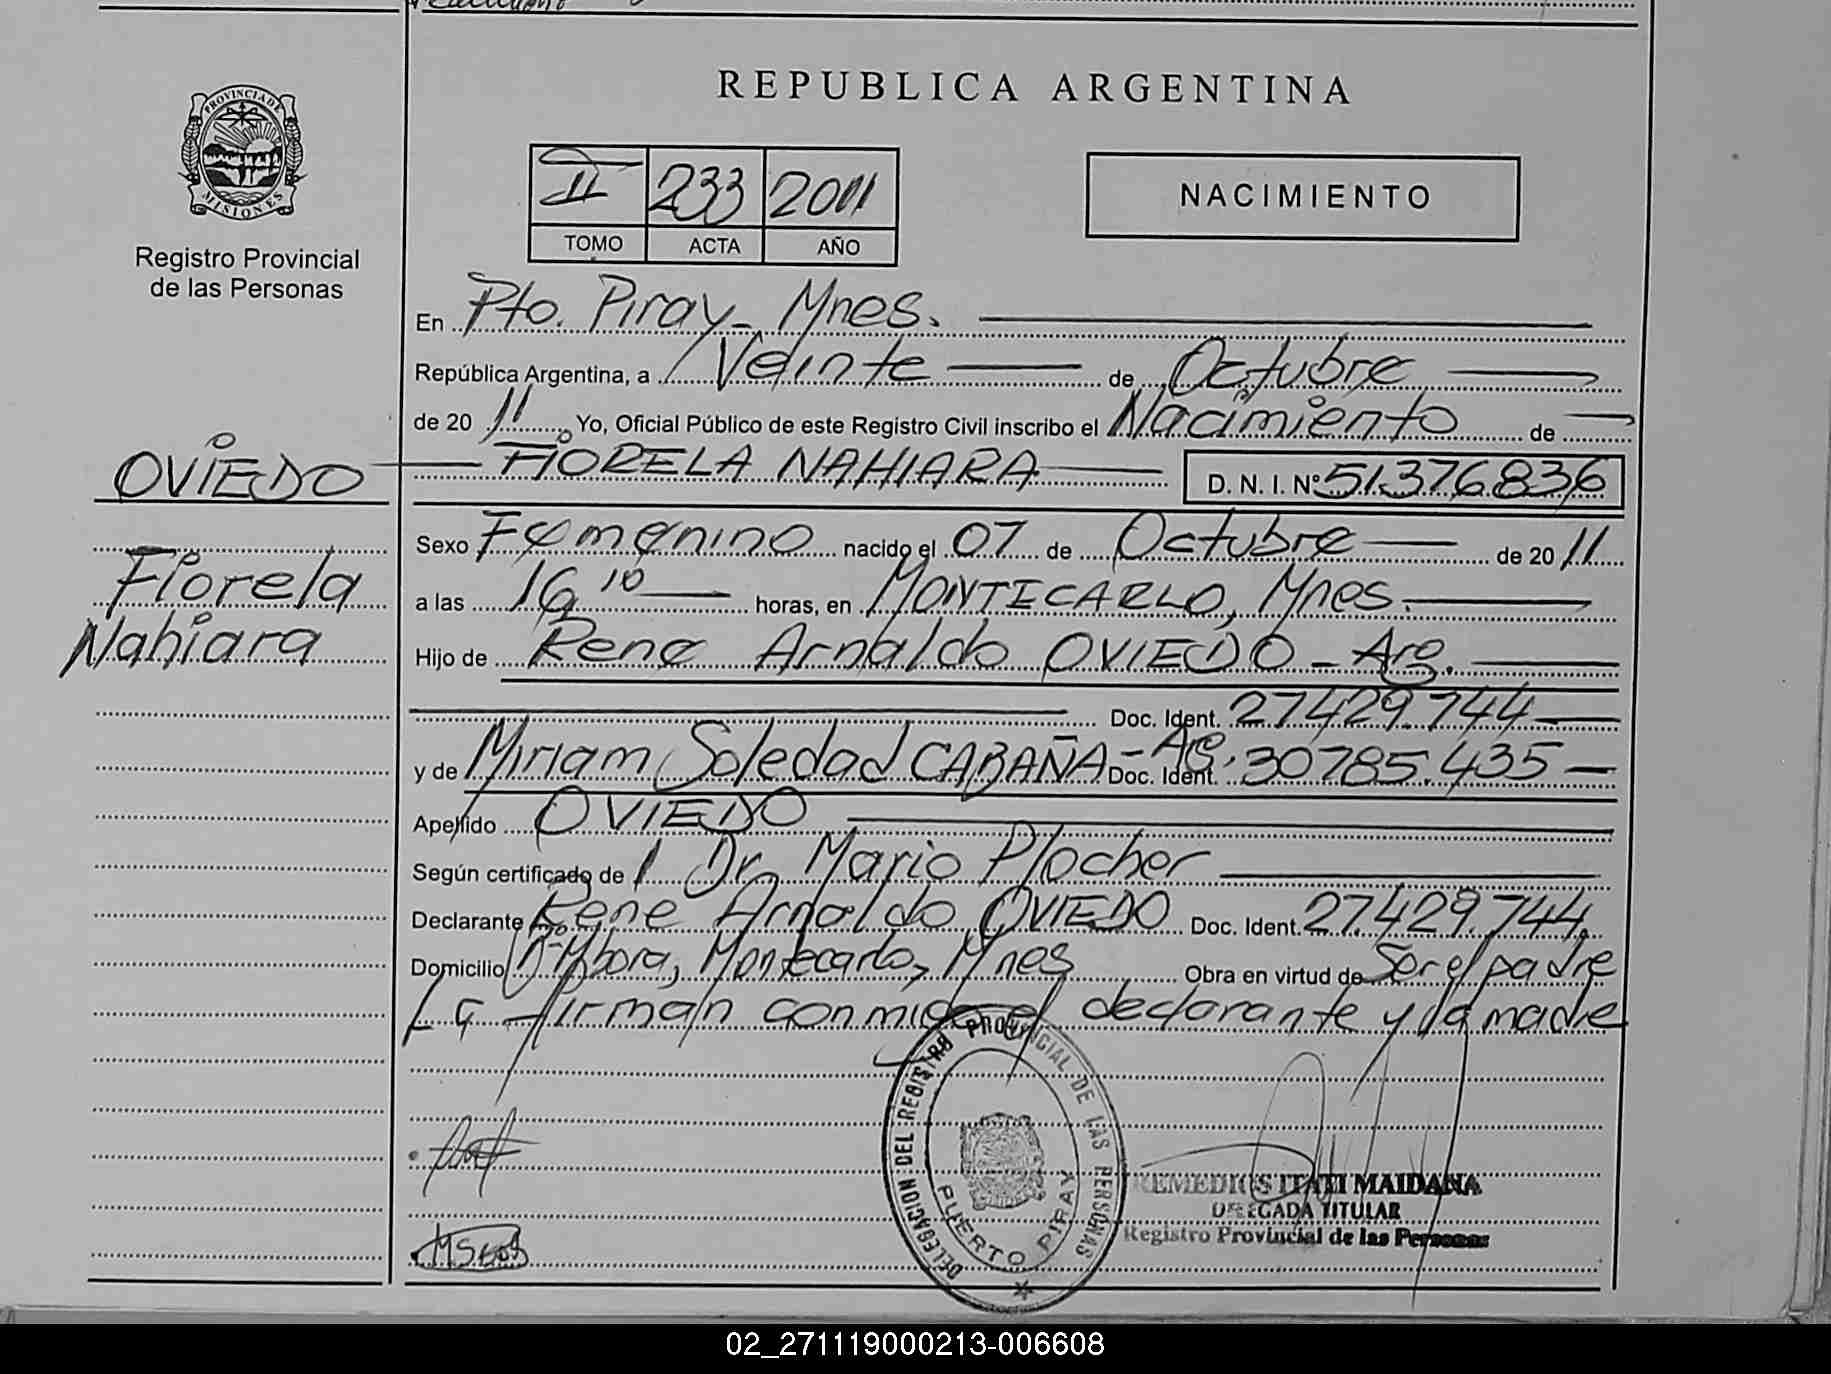 REPUBLICA ARGENTINA
PROVINCIA DE MISIONES
Registro Provincial
de las Personas
II 233 2011
TOMO ACTA AÑO
NACIMIENTO
En Pto. Piray - Mnes.
República Argentina, a Veinte de Octubre
de 20 11 Yo, Oficial Público de este Registro Civil inscribo el Nacimiento de
OVIEDO FIORELA NAHIARA D. N. I. Nº 51.376.836
Fiorela
Nahiara
Sexo Femenino nacido el 07 de Octubre de 20 11
a las 16 10 horas, en MONTECARLO, Mnes.
Hijo de Rene Arnaldo OVIEDO - Arg.
Doc. Ident. 27.429.744
y de Miriam Soledad CABAÑA - Arg. Doc. Ident. 30785.435
Apellido OVIEDO
Según certificado de Dr. Mario Plocher
Declarante Rene Arnaldo OVIEDO Doc. Ident. 27.429.744.
Domicilio Bº Ybora, Montecarlo, Mnes Obra en virtud de Ser el padre
firman conmigo el declarante y la madre
DELEGACION DEL REGISTRO PROVINCIAL DE LAS PERSONAS
PUERTO PIRAY
REMEDIOS ITATI MAIDANA
DELEGADA TITULAR
Registro Provincial de las Personas
02_271119000213-006608